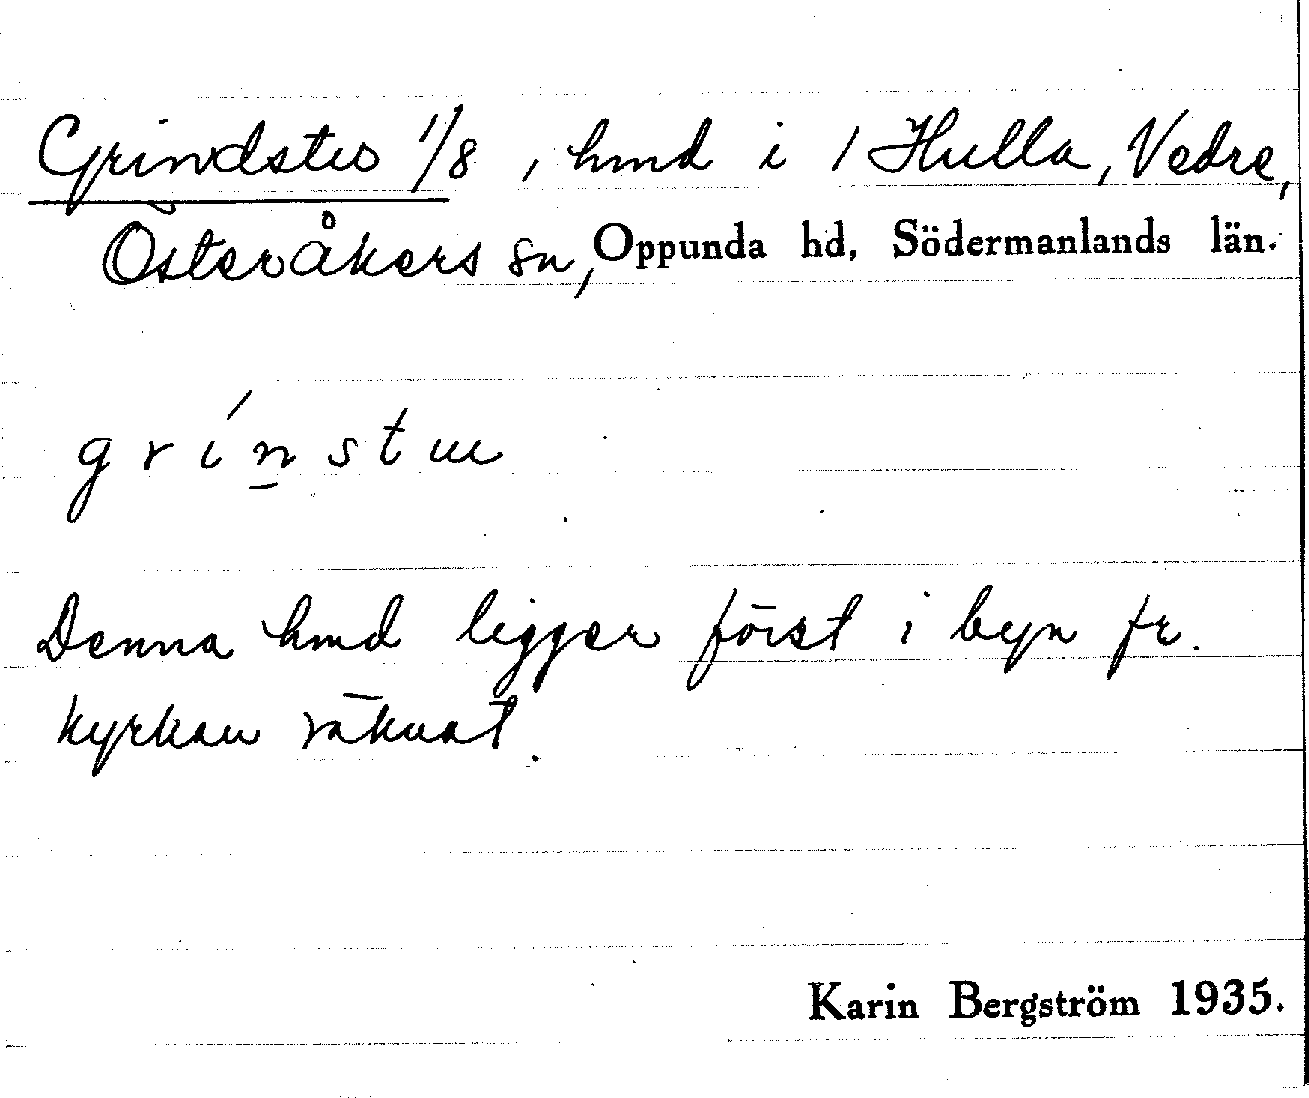 Grindstu 1/8, hmd i 1 Hulla, Vedre,
Österåkers sn, Oppunda hd, Södermanlands län.
grínstuu
Denna hmd ligger först i byn fr.
kyrkan räknat.
Karin Bergström 1935.